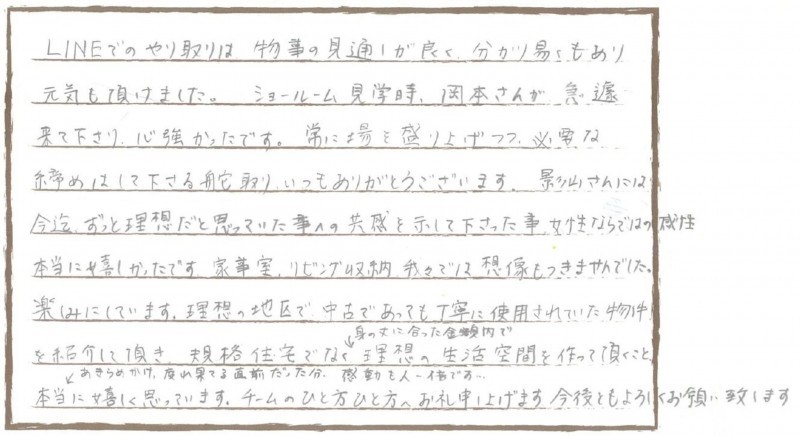 LINEでのやり取りは 物事の見通しが良く、分かり易くもあり
元気も頂けました。 ショールーム見学時、岡本さんが 急遽
来て下さり、心強かったです。常に場を盛り上げつつ、必要な
締めはして下さる舵取り、いつもありがとうございます。 影山さんには
今迄、ずっと理想だと思っていた事への共感を示して下さった事、女性ならではの感性
本当に嬉しかったです。家事室、リビング収納、我々では想像もつきませんでした。
楽しみにしています。理想の地区で、中古であっても丁寧に使用されていた物件
身の丈に合った金額内で
を紹介して頂き、規格住宅でなく理想の生活空間を作って頂くこと、
あきらめかけ、疲れ果てる直前だった分、感動も人一倍です…
本当に嬉しく思っています。チームのひと方ひと方へお礼申し上げます。今後ともよろしくお願い致します